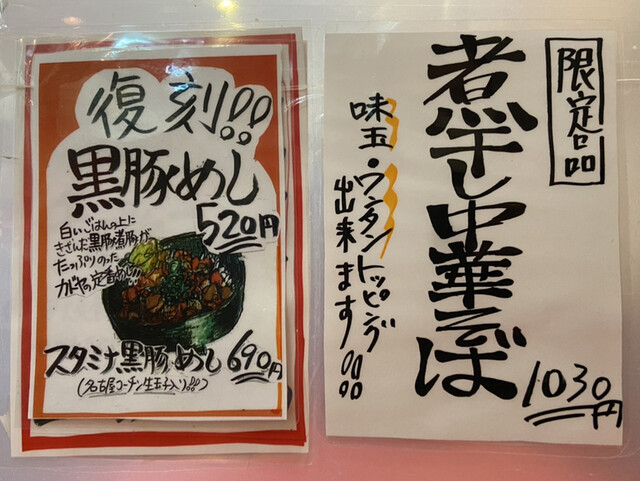 復刻!!
黒豚めし
520円
白いごはんの上に
きざんだ黒豚煮豚が
たっぷりのった
カドヤの定番めし!!
スタミナ黒豚めし690円
(名古屋コーチン生玉子入り!!)
限定品
煮干し中華そば
1030円
味玉・ワンタントッピング
出来ます!!!